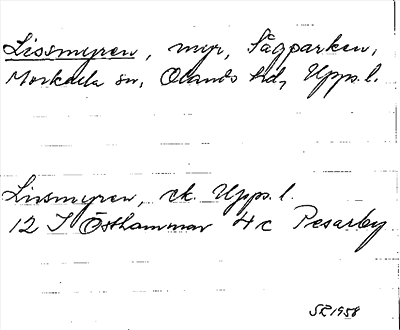 Lissmyren, myr, Sågparken,
Morkarla sn, Olands hd, Upps.l.
Lissmyren, ek. Upps.l.
12 I Östhammar 4c Pesarby
SR 1958